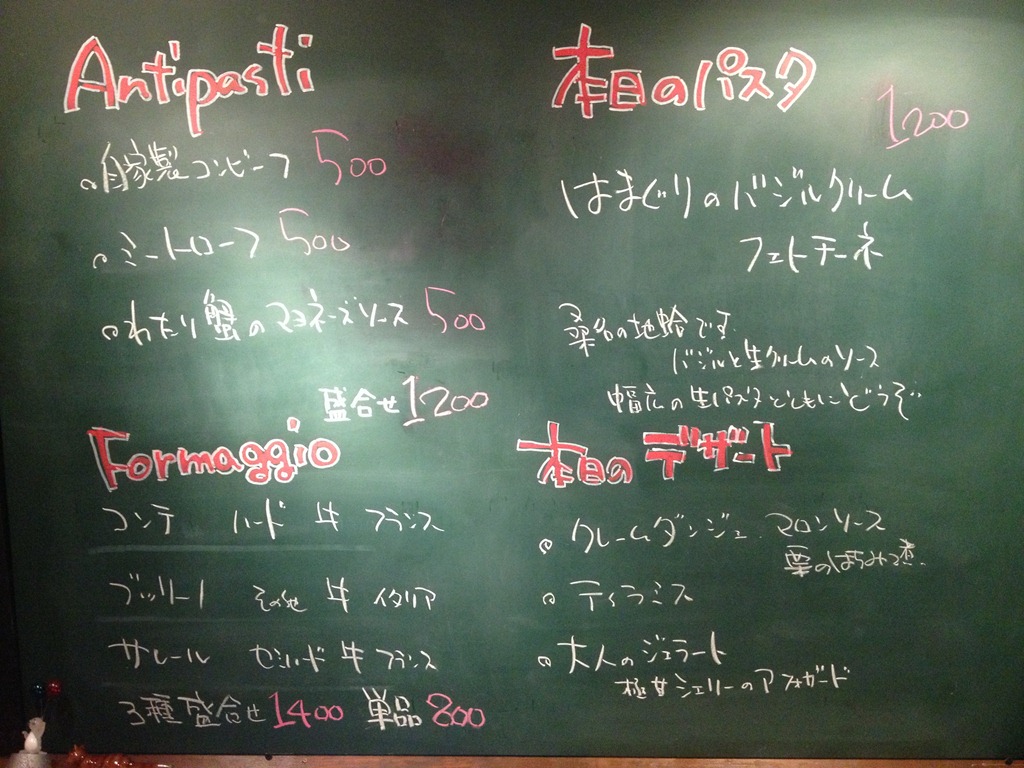 Antipasti
自家製コンビーフ 500
ミートローフ 500
わたり蟹のマヨネーズソース 500
盛合せ 1200
Formaggio
コンテ ハード 牛 フランス
ブッリーノ その他 牛 イタリア
サレール セミハード 牛 フランス
3種盛合せ 1400 単品 800
本日のパスタ
1200
はまぐりのバジルクリーム
フェトチーネ
桑名の地蛤です
バジルと生クリームのソース
幅広の生パスタとともにどうぞ
本日のデザート
クレームダンジュ マロンソース
栗のはちみつ煮
ティラミス
大人のジェラート
極甘シェリーのアフォガード